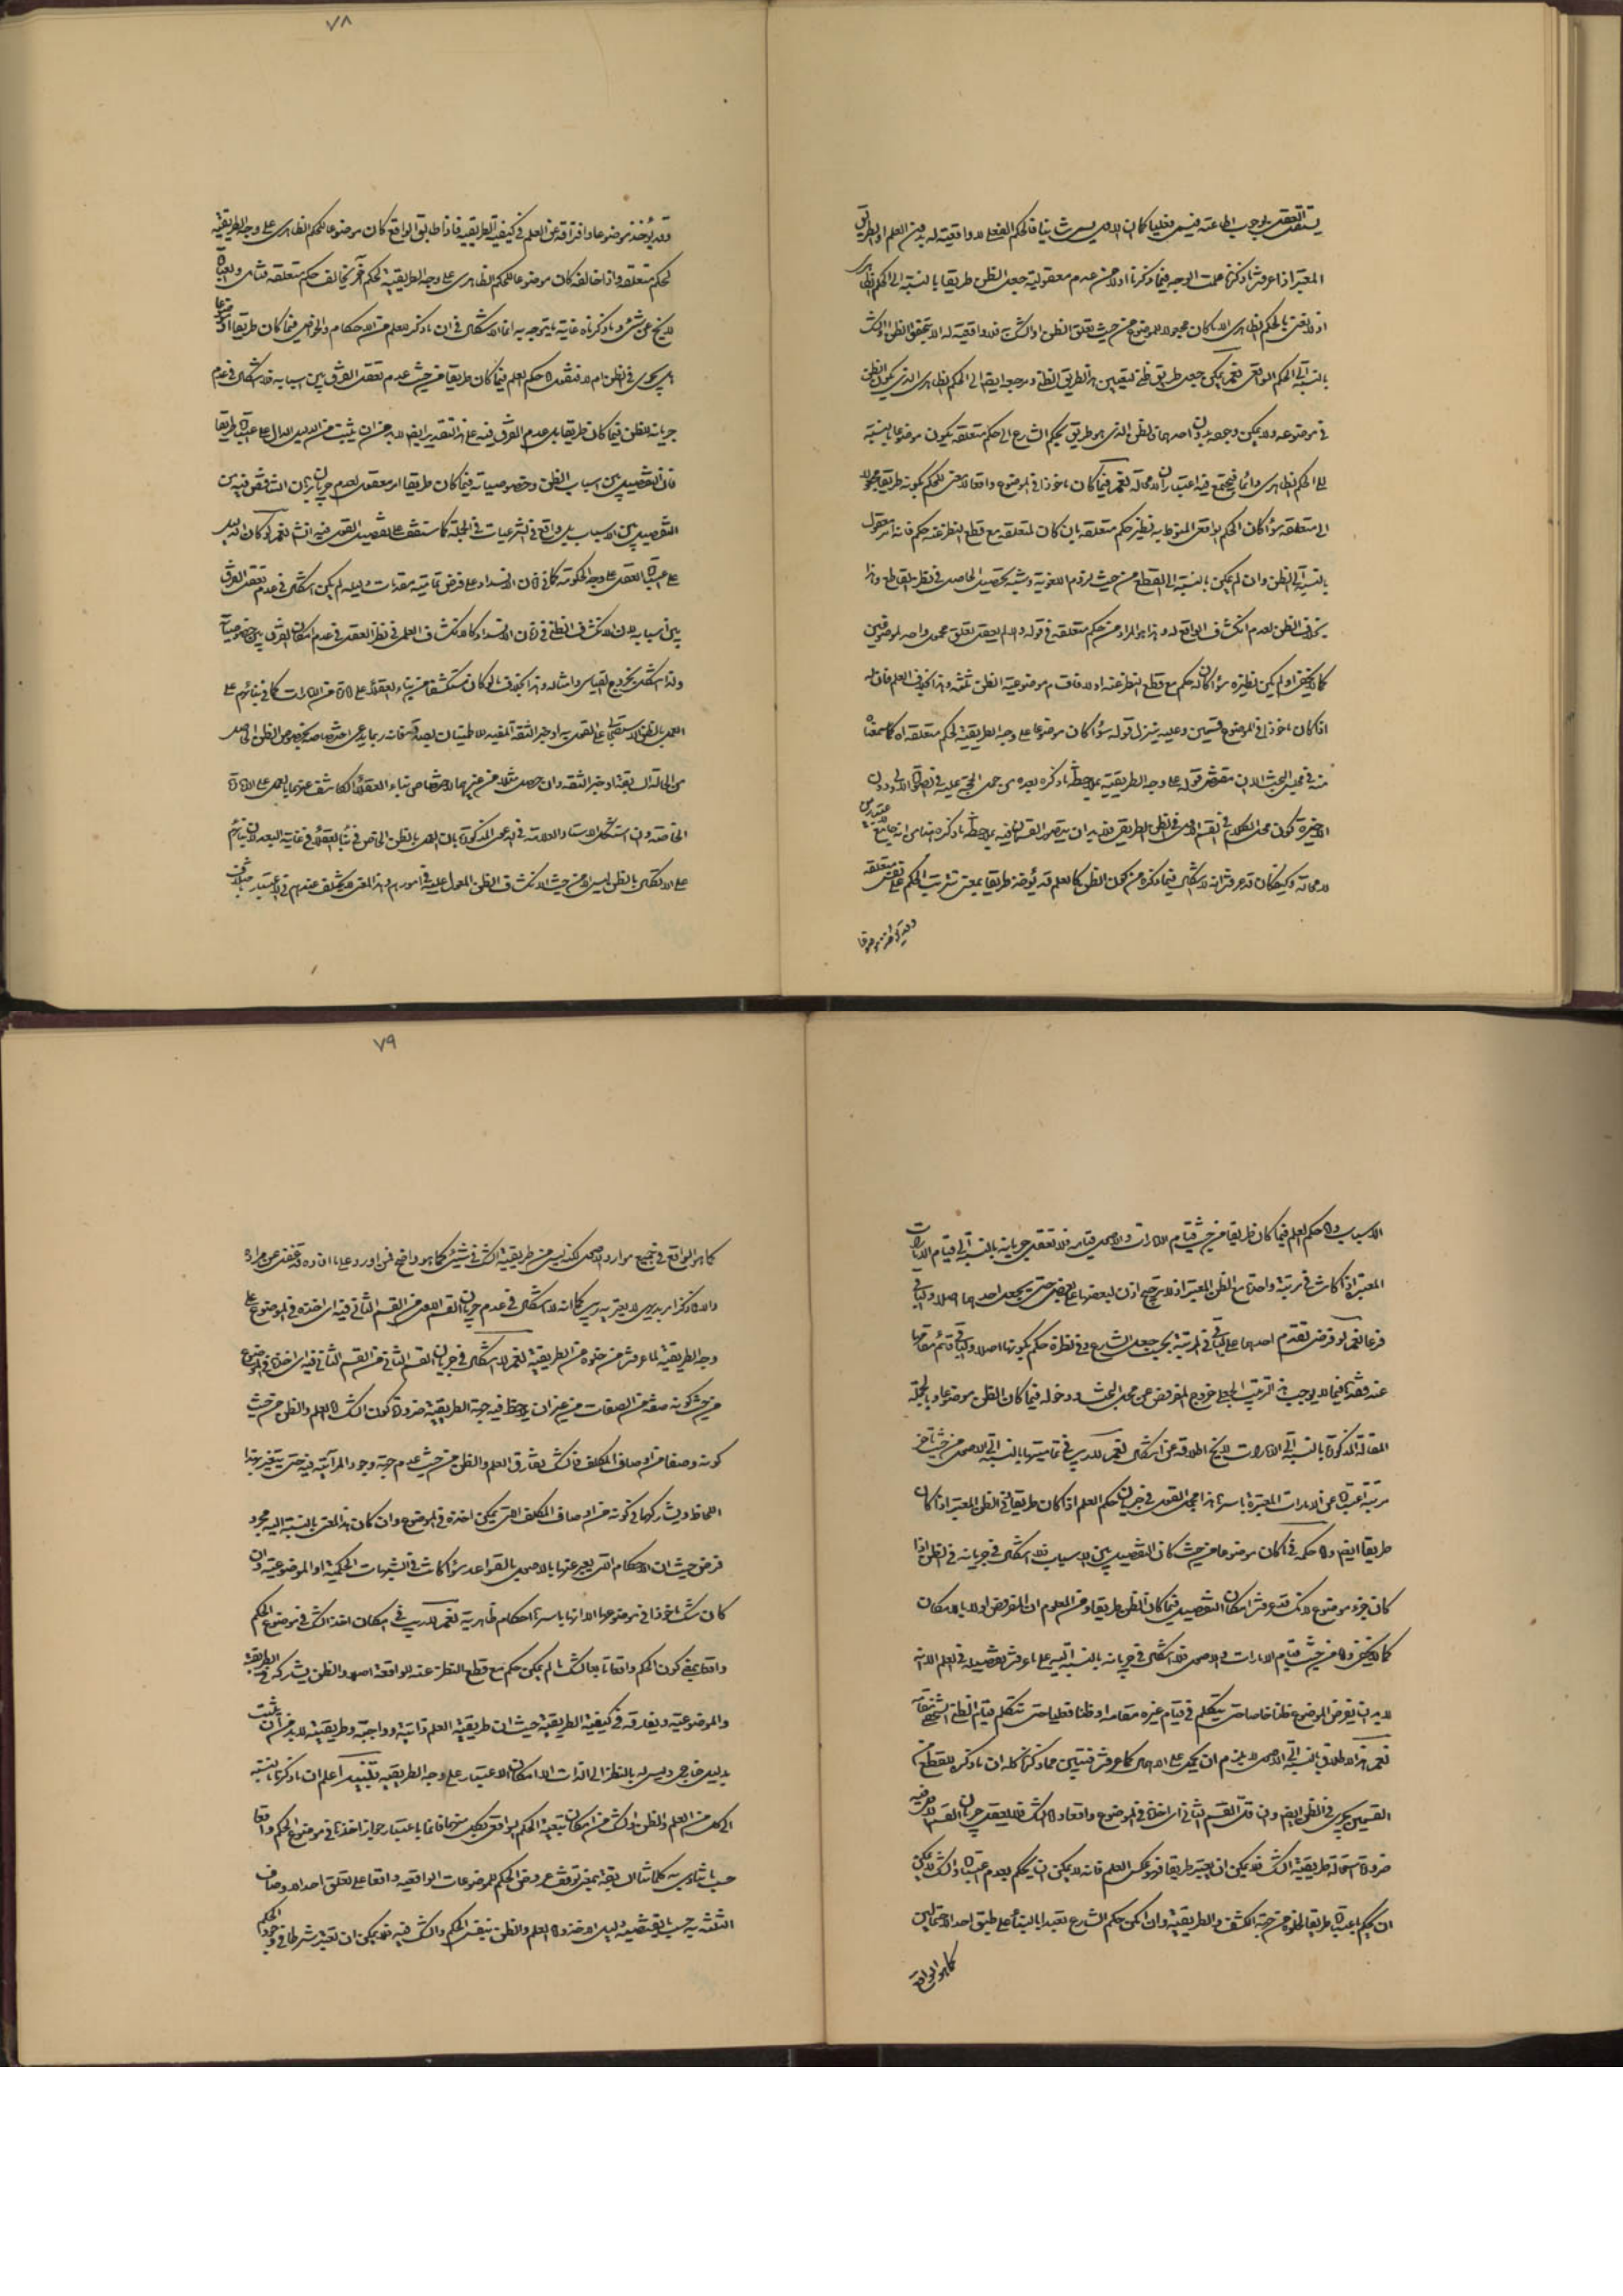 يستقل العقل بوجوب اطاعته فيسمى فعليا كان الاولى ليس شيئا فالحكم الفعلى لا واقعية له بدون العلم او الطريق
المعتبر اذا عرفت ما ذكرنا علمت الوجه فيما ذكرنا اولا من عدم معقولية جعل الظن طريقا بالنسبة الى الحكم الظاهرى
اذ لا نعنى بالحكم الظاهرى الا ما كان مجعولا للموضوع من حيث تعلق الظن او الشك به فلا واقعية له الا بتحقق الظن او الشك
بالنسبة الى الحكم الواقعى نعم يمكن جعل طريق ظنى لتعيين هذا الطريق الظنى ومرجعه ايضا الى الحكم الظاهرى الذى يكون الظن
فى موضوعه ولا يمكن وجوده بدون احدهما والظن الذى هو طريق بحكم الشارع الى حكم متعلقه يكون موضوعا بالنسبة
الى الحكم الظاهرى دائما فيجتمع فيه اعتباران لا محالة نعم فيما كان ماخوذا فى الموضوع واقعا لا معنى للحكم بكونه طريقا مجعولا
الى متعلقه سواء كان الحكم الواقعى المنوط به نظير حكم متعلقه بان كان لمتعلقه مع قطع النظر عنه حكم فانه امر معقول
بالنسبة الى الظن وان لم يمكن بالنسبة الى القطع من حيث لزوم اللغوية وشبه تحصيل الحاصل فى نظر القاطع وهذا
بخلاف الظن لعدم انكشاف الواقع له وهذا هو المراد من حكم متعلقه فى قوله والا لم يعقل تعلق محمول واحد لموضوعين
كما لا يخفى او لم يكن نظيره سواء كان له حكم مع قطع النظر عنه او لا فاقسام موضوعية الظن ثلثة وهذا بخلاف العلم فان له
اذا كان ماخوذا فى الموضوع قسمين وعليه ينزل قوله سواء كان موضوعا على وجه الطريقية لحكم متعلقه اه كما سمعناه
منه فى مجلس البحث الا ان مقتضى قوله على وجه الطريقية بملاحظة ما ذكره بعده من حمل الحجة عليه فى الصورة الاولى دون
الاخيرة كون محل الكلام فى القسم الاول فى الظن الطريقى فلا بد ان يتصور القسمان فيه بملاحظة ما ذكره
لا محالة وكيف كان قد عرفت انه لا اشكال فيما ذكره من كون الظن كالعلم قد يؤخذ طريقا بمعنى ترتب الحكم على نفس متعلقه
وقد يؤخذ موضوعا
٧٨
وقد يؤخذ موضوعا وافتراقه عن العلم فى كيفية الطريقية فاذا طابق الواقع كان موضوعا للحكم الظاهرى على وجه الطريقية
لحكم متعلقه واذا خالفه كان موضوعا للحكم الظاهرى على وجه الطريقية لحكم آخر يخالف حكم متعلقه
لا يخلو عن شىء وما ذكرناه غاية ما يتوجه به انما الاشكال فى ان ما ذكر للعلم من الاحكام والخواص فيما كان طريقا او موضوعا
هل يجرى فى الظن ام لا فنقول اما حكم العلم فيما كان طريقا من حيث عدم تعقل الفرق بين اسبابه فلا اشكال فى عدم
جريانه للظن فيما كان طريقا بل عدم الفرق فيه على هذا التقدير ايضا لا بد من ان يثبت من الدليل الدال على اعتباره طريقا
فان التفصيل بين اسباب الظن وخصوصياته فيما كان طريقا امر معقول لعدم جريان برهان التناقض فيه بين
التفصيل بين الاسباب بل واقع فى الشرعيات فى الجملة كما ستقف على تفصيل القول فيه انش نعم لو كان الدليل
على اعتباره العقل على وجه الحكومة كما فى زمان الانسداد على فرض تمامية مقدمات دليله لم يكن اشكال فى عدم تعقل الفرق
بين اسبابه لان الانكشاف الظنى فى زمان الانسداد كالانكشاف العلمى فى نظر العقل فى عدم امكان الفرق بين خصوصياته
ولذا اشكل بخروج القياس وامثاله وهذا بخلاف ما لو كان مستكشفا من بناء العقلاء على امارة من الامارات كما فى بنائهم على
العمل بالظن الاستصحابى على القول به او خبر الثقة المفيد للاطمينان بصدقه فانه ربما يدعى اختصاصه بخصوص الظن الحاصل
من الحالة السابقة او خبر الثقة وان حصل مثله من غيرهما لاختصاص بناء العقلاء الكاشف عنهما بالعمل على الامارة
الخاصة وان استشكل الاستاد العلامة فى الدعوى المذكورة بان العمل بالظن الخاص فى بناء العقلاء فى غاية البعد لان بنائهم
على الاتكال بالظن ليس الا من حيث الانكشاف الظنى المعمول عليه فى امورهم وهذا المعنى لا يختلف عندهم فى الاعتبار باختلاف
الاسباب واما حكم العلم فيما كان طريقا من حيث قيام الامارات والاصول مقامه فلا تعقل جريانه بالنسبة الى قيام الامارات
المعتبرة اذا كانت فى مرتبة واحدة مع الظن المعتبر اذ لا ترجيح اذن لبعضها على بعض حتى يجعل احدهما اصلا والباقى
فرعا نعم لو فرض تقدم احدهما على الباقى فى المرتبة بحيث جعل الشارع فى نظره حكم بكونها اصلا والباقى قائم مقامها
عند فقدها فيما لا يوجب هذا الترتيب الجعلى خروج المفروض عن محل البحث ودخوله فيما كان الظن موضوعا وبالجملة
المقالة المذكورة بالنسبة الى الامارات لا يخلو اطلاقه عن اشكال نعم لا ريب فى تماميتها بالنسبة الى الاصول من حيث تاخر
مرتبة اعتبارها عن الامارات المعتبرة باسرها هذا مجمل القول فى جريان حكم العلم اذا كان طريقا فى الظن المعتبر اذا كان
طريقا ايضا واما حكمه فى ما كان موضوعا من حيث كان التفصيل بين الاسباب فلا اشكال فى جريانه فى الظن اذا
كان جزء موضوع لانك قد عرفت امكان التفصيل فيما كان الظن طريقا ومن المعلوم ان المفروض اولى بالامكان
كما لا يخفى واما من حيث قيام الامارات والاصول فلا اشكال فى جريانه بالنسبة اليه على ما عرفت تفصيله فى العلم الا انه
لا بد ان يفرض الموضوع ظنا خاصا حتى يتكلم فى قيام غيره مقامه او ظنا قطعيا حتى يتكلم قيام الظن الشخصى مقامه
نعم هذا الاطلاق بالنسبة الى الاصول لا يلزم ان يحمل على الاهمال كما عرفت فتبين مما ذكرنا كله ان ما ذكره للقطع من
القسمين يجرى فى الظن ايضا وان قل القسم الثانى اى اخذه فى الموضوع واقعا واما الشك فلا يعقل جريان القسم الاول فيه
ضرورة استحالة طريقية الشك فلا يمكن ان يعتبر طريقا فهو عكس العلم فانه لا يمكن ان يحكم بعدم اعتباره والشك لا يمكن
ان يحكم باعتباره طريقا لخلوه من جهة الكشف والطريقية وان امكن حكم الشارع تعبدا بالبناء على طبق احد الاحتمالين
كما هو الواقع
٧٩
كما هو الواقع فى جميع موارد الاصول لكنه ليس من طريقية الشك فى شىء كما هو واضح فمن اورد على ما افاده قد غفل عن مراده
والا فما ذكر امر بديهى لا يعتريه ريب كما انه لا اشكال فى عدم جريان القسم الاول من القسم الثانى فيه اى اخذه فى الموضوع على
وجه الطريقية لما عرفت من خلوه من الطريقية نعم لا اشكال فى جريان القسم الثانى من القسم الثانى فيه اى اخذه فى الموضوع
من حيث كونه صفة من الصفات من غير ان يلاحظ فيه جهة الطريقية ضرورة كون الشك كالعلم والظن من حيث
كونه وصفا من اوصاف المكلف فالشك يفارق العلم والظن من حيث عدم جهة وجود المرآتية فيه حتى يعتبر بهذا
اللحاظ ويشاركهما فى كونه من اوصاف المكلف التى يمكن اخذه فى الموضوع وان كان هذا المعنى بالنسبة اليه مجرد
فرض حيث ان الاحكام التى يعبر عنها بالاصول بالقواعد سواء كانت فى الشبهات الحكمية او الموضوعية وان
كان الشك ماخوذا فى موضوعها الا انها باسرها احكام ظاهرية نعم لا ريب فى امكان اخذ الشك فى موضوع الحكم
واقعا بمعنى كون الحكم واقعا تابعا للشك ما لم يكن حكم مع قطع النظر عنه للواقعة اصلا والظن يشاركه فى الطريقية
والموضوعية ويفارقه فى كيفية الطريقية حيث ان طريقية العلم ذاتية وواجبة وطريقيته لا بد من ان تثبت
بدليل خارجى وليس له بالنظر الى الذات الا امكان الاعتبار على وجه الطريقية تنبيه اعلم ان ما ذكرنا بالنسبة
الى كل من العلم والظن والشك من امكان تبعية الحكم الواقعى لكل منها فانما باعتبار جواز اخذها فى موضوع الحكم واقعا
حسب ما ينادى به كلماتنا السابقة بمعنى توقف عروض الحكم للموضوعات الواقعية واقعا على تعلق احد الاوصاف
الثلثة به حسب ما يقتضيه دليل اخذه واما العلم والظن بنفس الحكم والشك فيه فلا يمكن ان تعتبر شرطا فى وجود الحكم